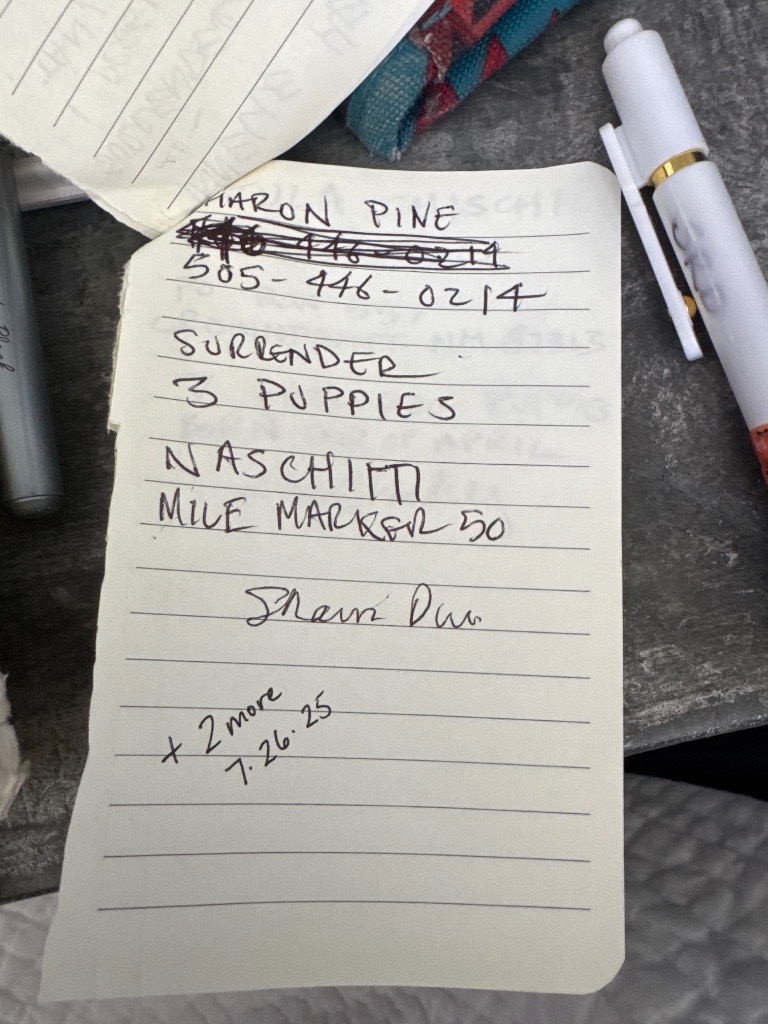 SHARON PINE
505-446-0214
SURRENDER
3 PUPPIES
NASCHITTI
MILE MARKER 50
+ 2 more
7.26.25